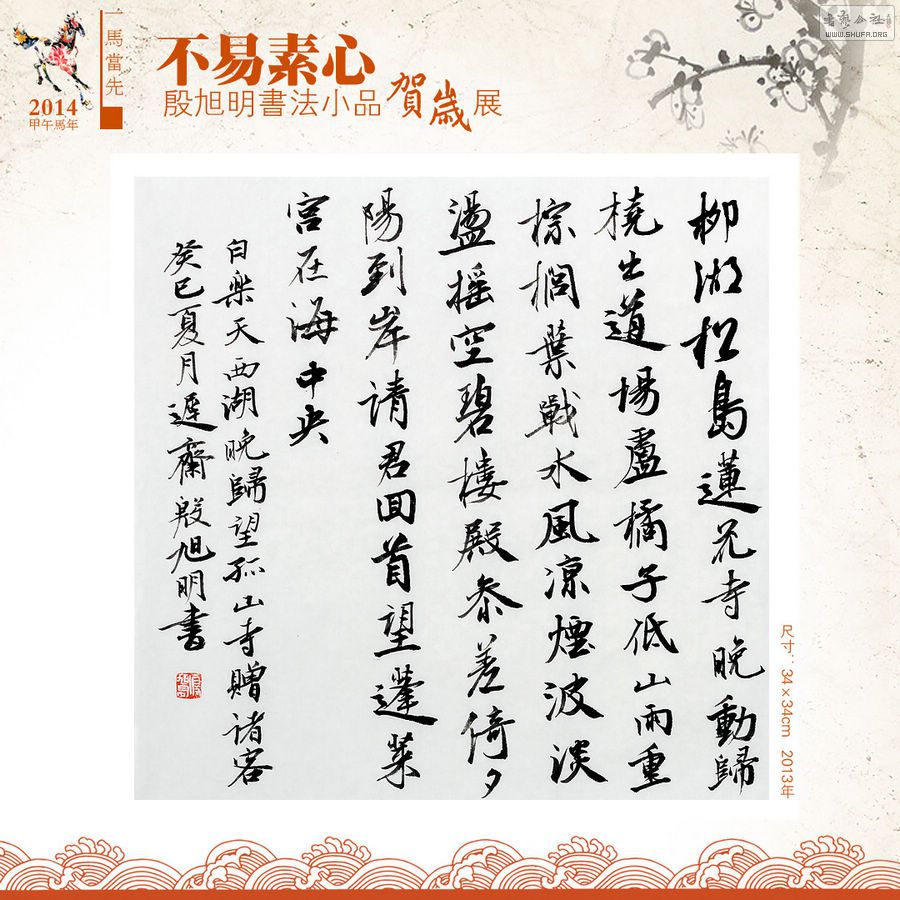 一馬當先
2014
甲午馬年
不易素心
殷旭明書法小品賀歲展
WWW.SHUFA.ORG
柳湖松島蓮花寺晚動歸
橈出道場盧橘子低山雨重
棕櫚葉戰水風涼煙波淡
盪摇空碧樓殿參差倚夕
陽到岸請君回首望蓬萊
宮在海中央
白樂天西湖晚歸望孤山寺贈诸客
癸巳夏月遲齋殷旭明書
尺寸：34×34cm 2013年